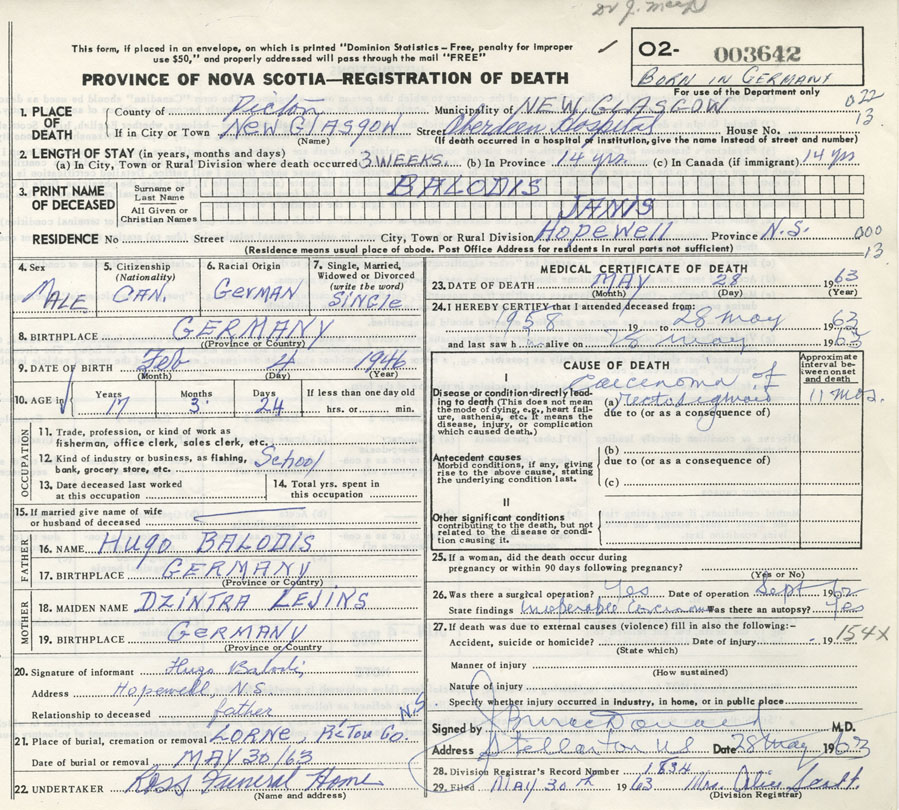 This form, if placed in an envelope, on which is printed "Dominion Statistics – Free, penalty for improper
use $50," and properly addressed will pass through the mail "FREE"
PROVINCE OF NOVA SCOTIA—REGISTRATION OF DEATH
O2- 003642
BORN IN GERMANY
For use of the Department only
022
13
1. PLACE OF DEATH
County of Pictou Municipality of NEW GLASGOW
If in City or Town NEW GLASGOW Street Aberdeen Hospital House No.
(Name) (If death occurred in a hospital or institution, give the name instead of street and number)
2. LENGTH OF STAY (in years, months and days)
(a) In City, Town or Rural Division where death occurred 3 WEEKS (b) In Province 14 yrs. (c) In Canada (if immigrant) 14 yrs
3. PRINT NAME OF DECEASED
Surname or Last Name BALODIS
All Given or Christian Names JANIS
RESIDENCE No Street City, Town or Rural Division Hopewell Province N.S.
000
13
(Residence means usual place of abode. Post Office Address for residents in rural parts not sufficient)
4. Sex MALE
5. Citizenship (Nationality) CAN.
6. Racial Origin GERMAN
7. Single, Married, Widowed or Divorced (write the word) SINGLE
8. BIRTHPLACE GERMANY
(Province or Country)
9. DATE OF BIRTH Feb 4 1946
(Month) (Day) (Year)
10. AGE in Years 17 Months 3 Days 24 If less than one day hrs. or min.
OCCUPATION
11. Trade, profession, or kind of work as
fisherman, office clerk, sales clerk, etc.
12. Kind of industry or business, as fishing,
bank, grocery store, etc. School
13. Date deceased last worked
at this occupation
14. Total yrs. spent in
this occupation
15. If married give name of wife
or husband of deceased
FATHER
16. NAME HUGO BALODIS
17. BIRTHPLACE GERMANY
(Province or Country)
MOTHER
18. MAIDEN NAME DZINTRA LEJINS
19. BIRTHPLACE GERMANY
(Province or Country)
20. Signature of informant Hugo Balodis
Address Hopewell, N.S.
Relationship to deceased father
21. Place of burial, cremation or removal LORNE PICTOU CO. N.S.
Date of burial or removal MAY 30/63
22. UNDERTAKER Ross Funeral Home
(Name and address)
MEDICAL CERTIFICATE OF DEATH
23. DATE OF DEATH MAY 28 1963
(Month) (Day) (Year)
24. I HEREBY CERTIFY that I attended deceased from:
1958 19 to 28 May 1963
and last saw h alive on 28 May 1963
CAUSE OF DEATH
Approximate interval between onset and death
I
Disease or condition directly leading to death (This does not mean the mode of dying, e.g., heart failure, asthenia, etc. It means the disease, injury, or complication which caused death.)
Carcinoma of
(a) Rectosigmoid 11 mos.
due to (or as a consequence of)
Antecedent causes
Morbid conditions, if any, giving rise to the above cause, stating the underlying condition last.
(b)
due to (or as a consequence of)
(c)
II
Other significant conditions
contributing to the death, but not related to the disease or condition causing it.
25. If a woman, did the death occur during
pregnancy or within 90 days following pregnancy?
(Yes or No)
26. Was there a surgical operation? Yes Date of operation Sept 1962
State findings Inoperable Carcinoma Was there an autopsy? Yes
27. If death was due to external causes (violence) fill in also the following:-
154X
Accident, suicide or homicide? Date of injury 19
(State which)
Manner of injury
(How sustained)
Nature of injury
Specify whether injury occurred in industry, in home, or in public place
Signed by M.D.
Address Stellarton NS Date 28 May 1963
28. Division Registrar's Record Number 1834
29. Filed MAY 30th 1963 Mrs. Alice
(Division Registrar)